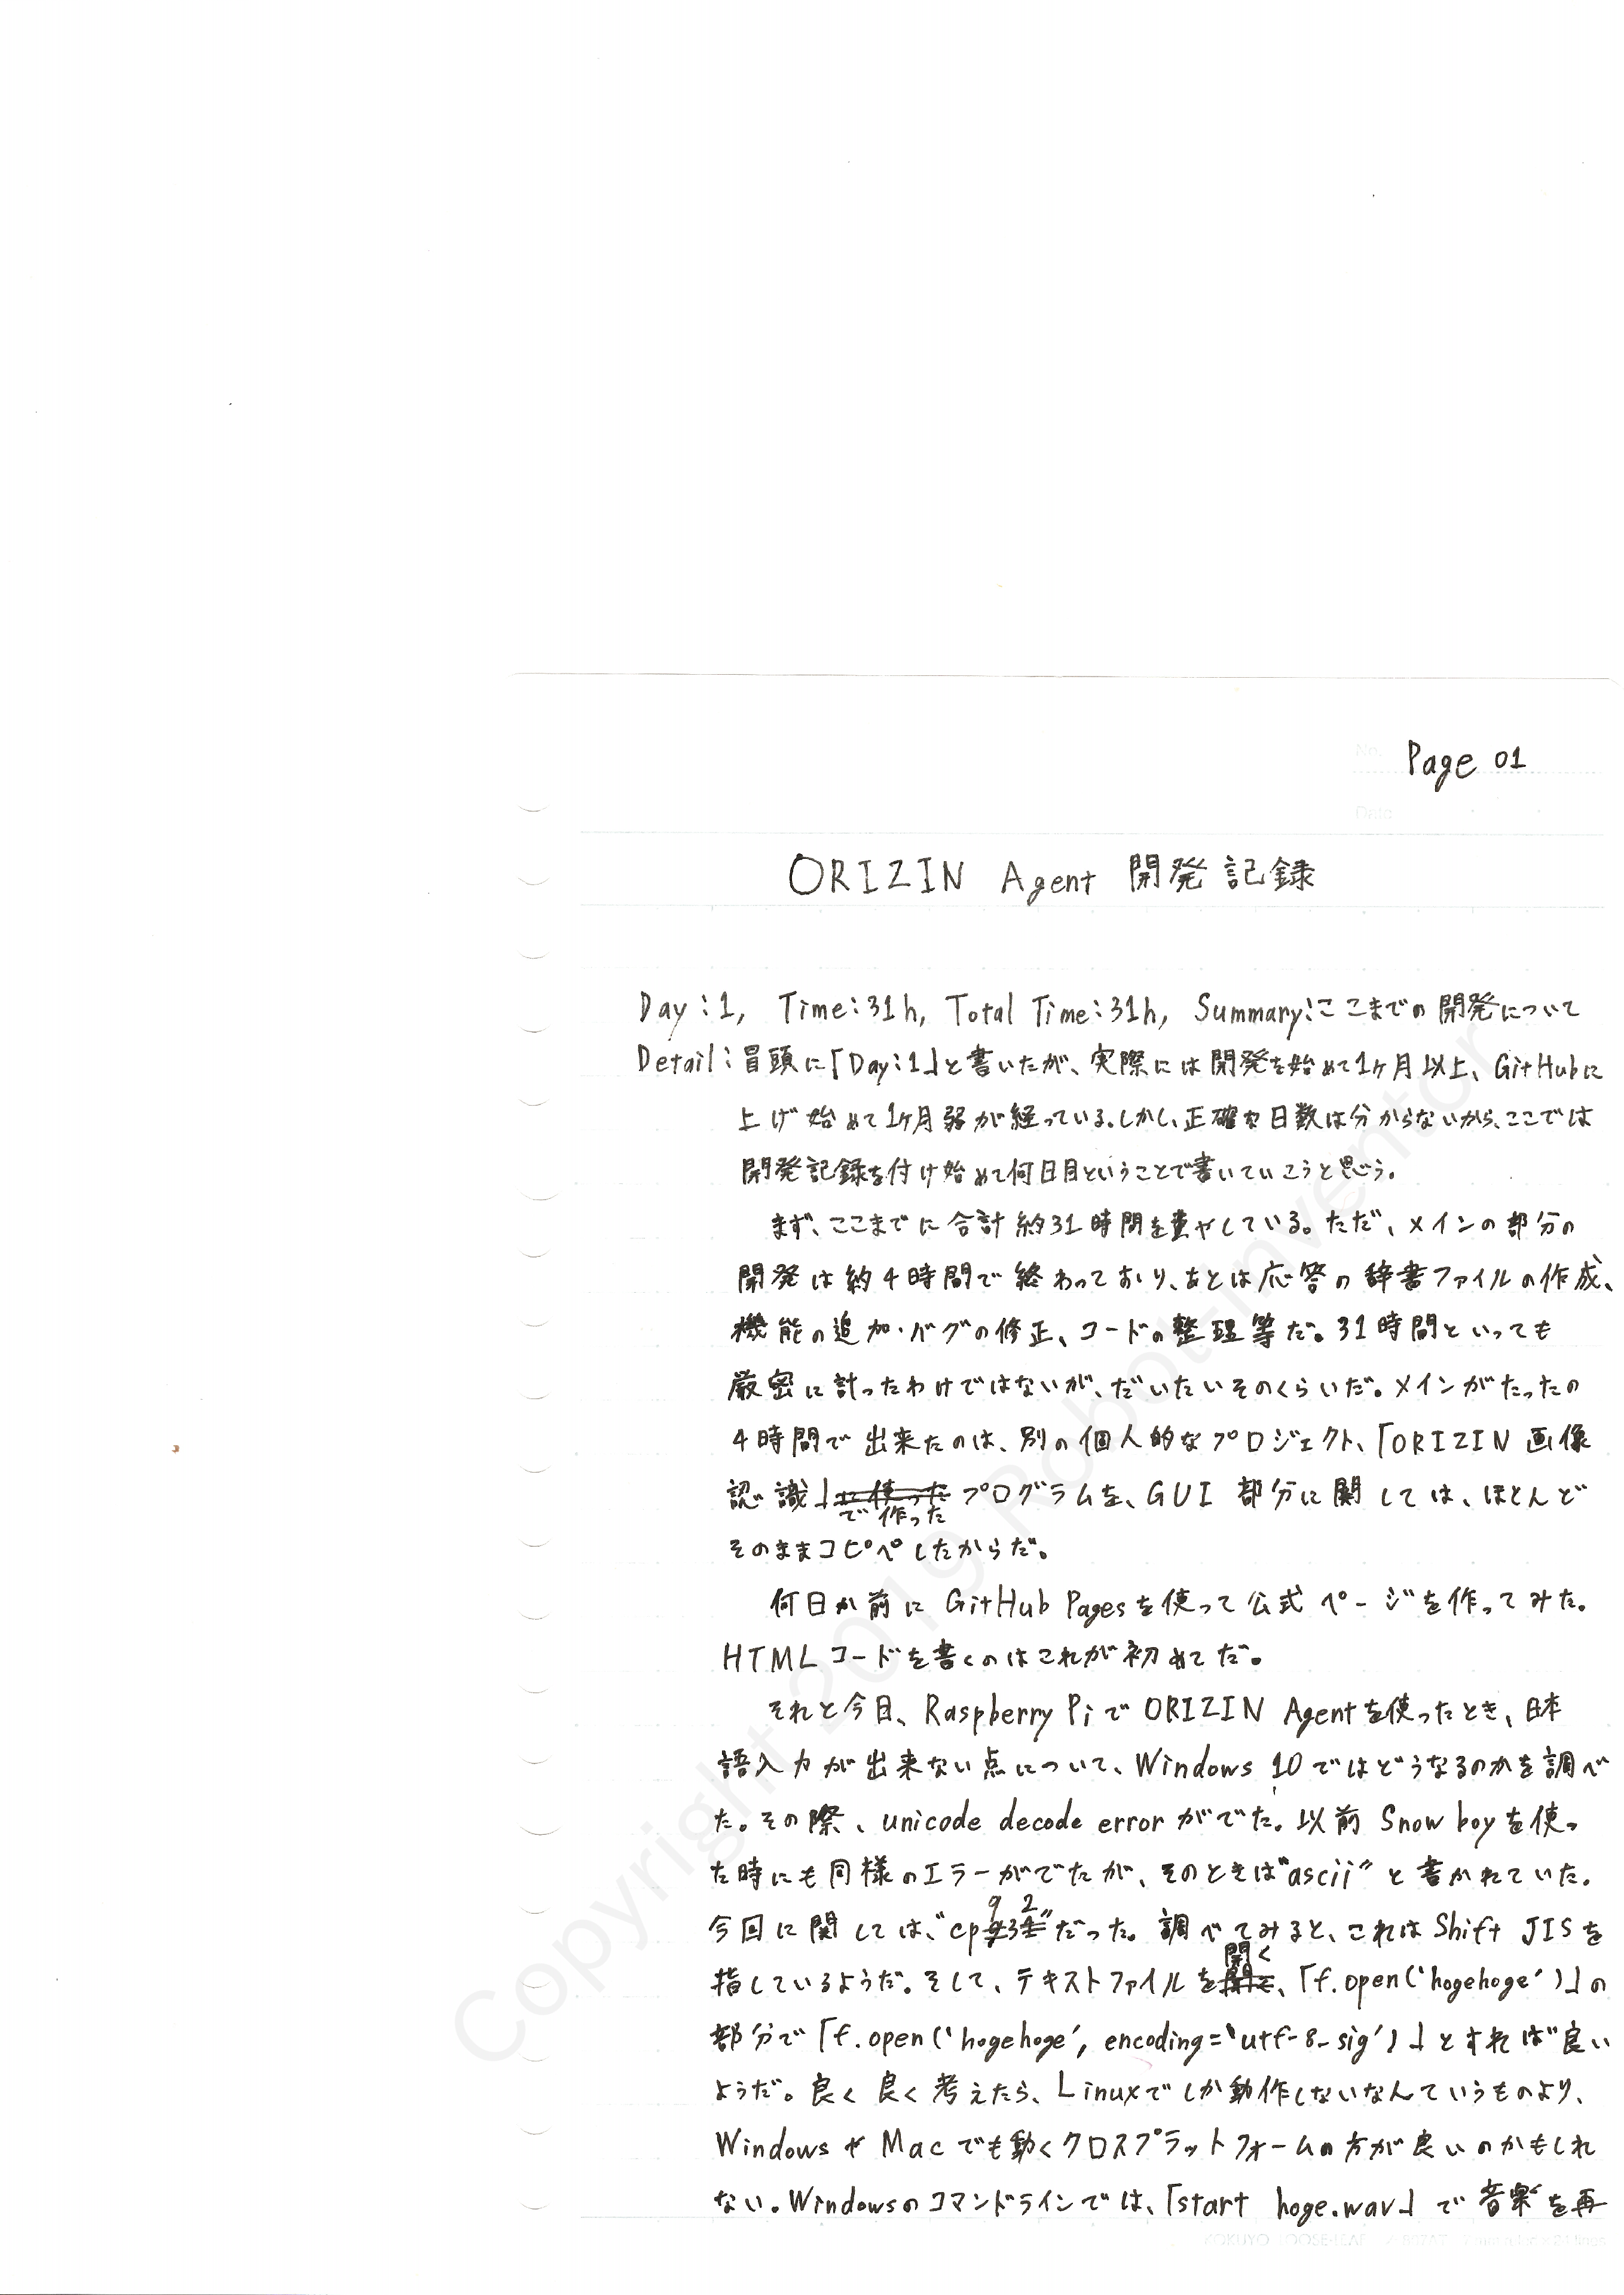 Page 01
ORIZIN Agent 開発記録
Day:1, Time:31h, Total Time:31h, Summary:ここまでの開発について
Detail:冒頭に「Day:1」と書いたが、実際には開発を始めて1ヶ月以上、GitHubに
上げ始めて1ヶ月弱が経っている。しかし、正確な日数は分からないから、ここでは
開発記録を付け始めて何日目ということで書いていこうと思う。
まず、ここまでに合計約31時間を費やしている。ただ、メインの部分の
開発は約4時間で終わっており、あとは応答の辞書ファイルの作成、
機能の追加・バグの修正、コードの整理等だ。31時間といっても
厳密に計ったわけではないが、だいたいそのくらいだ。メインがたったの
4時間で出来たのは、別の個人的なプロジェクト、「ORIZIN 画像
認識」で作ったプログラムを、GUI 部分に関しては、ほとんど
そのままコピペしたからだ。
何日か前に GitHub Pagesを使って公式ページを作ってみた。
HTMLコードを書くのはこれが初めてだ。
それと今日、Raspberry Piで ORIZIN Agentを使ったとき、日本
語入力が出来ない点について、Windows 10ではどうなるのかを調べ
た。その際、unicode decode error がでた。以前 Snowboyを使っ
た時にも同様のエラーがでたが、そのときは"ascii"と書かれていた。
今回に関しては、"cp932"だった。調べてみると、これは Shift JISを
指しているようだ。そして、テキストファイルを開く、「f.open('hogehoge')」の
部分で「f.open('hogehoge', encoding='utf-8-sig')」とすれば良い
ようだ。良く良く考えたら、Linuxでしか動作しないなんていうものより、
WindowsやMacでも動くクロスプラットフォームの方が良いのかもしれ
ない。Windowsのコマンドラインでは、「start hoge.wav」で音楽を再
Copyright 2019 Robot Inventor
KOKUYO LOOSE-LEAF
No.
Date